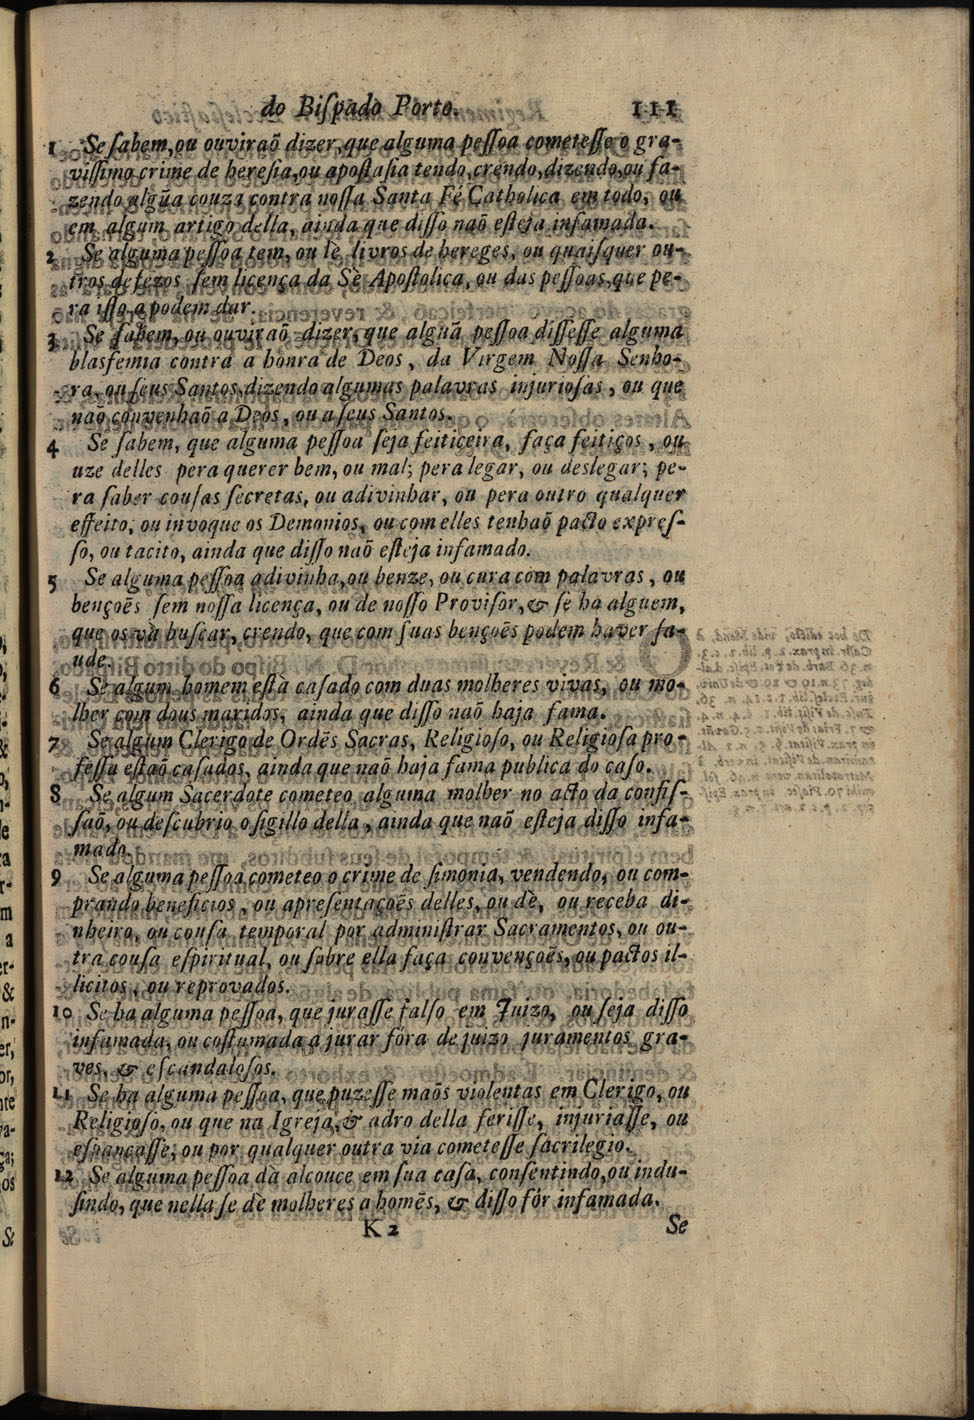 do Biſpado Porto. 111
1 Se ſabem, ou ouviraõ dizer, que alguma peſſoa cometeſſe o gra-
viſſimo crime de hereſia, ou apoſtaſia tendo, crendo, dizendo, ou fa-
zendo algũa couza contra noſſa Santa Fé Catholica em todo, ou
em algum artigo della, ainda que diſſo naõ eſteja infamada.
2 Se alguma peſſoa tem, ou lè livros de hereges, ou quaiſquer ou-
tros defezos ſem licença da Sè Apoſtolica, ou das peſſoas, que pe-
ra iſſo a podem dar.
3 Se ſabem, ou ouviraõ dizer, que algũa peſſoa diſſeſſe alguma
blasfemia contra a honra de Deos, da Virgem Noſſa Senho-
ra, ou ſeus Santos, dizendo algumas palavras injurioſas, ou que
naõ convenhaõ a Deos, ou a ſeus Santos.
4 Se ſabem, que alguma peſſoa ſeja feiticeira, faça feitiços, ou
uze delles pera querer bem, ou mal; pera legar, ou deslegar; pe-
ra ſaber couſas ſecretas, ou adivinhar, ou pera outro qualquer
effeito, ou invoque os Demonios, ou com elles tenhaõ pacto expreſ-
ſo, ou tacito, ainda que diſſo naõ eſteja infamado.
5 Se alguma peſſoa adivinha, ou benze, ou cura com palavras, ou
bençoẽs ſem noſſa licença, ou de noſſo Proviſor, & ſe ha alguem,
que os và buſcar, crendo, que com ſuas bençoẽs podem haver ſa-
ude.
6 Se algum homem eſtà caſado com duas molheres vivas, ou mo-
lher com dous maridos, ainda que diſſo naõ haja fama.
7 Se algum Clerigo de Ordẽs Sacras, Religioſo, ou Religioſa pro-
feſſa eſtaõ caſados, ainda que naõ haja fama publica do caſo.
8 Se algum Sacerdote cometeo alguma molher no acto da confiſ-
ſaõ, ou deſcubrio o ſigillo della, ainda que naõ eſteja diſſo infa-
mado.
9 Se alguma peſſoa cometeo o crime de ſimonia, vendendo, ou com-
prando beneficios, ou apreſentaçoẽs delles, ou dè, ou receba di-
nheiro, ou couſa temporal por adminiſtrar Sacramentos, ou ou-
tra couſa eſpiritual, ou ſobre ella faça convençoẽs, ou pactos il-
licitos, ou reprovados.
10 Se ha alguma peſſoa, que juraſſe falſo em Juizo, ou ſeja diſſo
infamada, ou coſtumada a jurar fóra de juizo juramentos gra-
ves, & eſcandaloſos.
11 Se ha alguma peſſoa, que puzeſſe maõs violentas em Clerigo, ou
Religioſo, ou que na Igreja, & adro della feriſſe, injuriaſſe, ou
eſpancaſſe, ou por qualquer outra via cometeſſe ſacrilegio.
12 Se alguma peſſoa dà alcouce em ſua caſa, conſentindo, ou indu-
ſindo, que nella ſe dè molheres a homẽs, & diſſo fór infamada.
K 2 Se